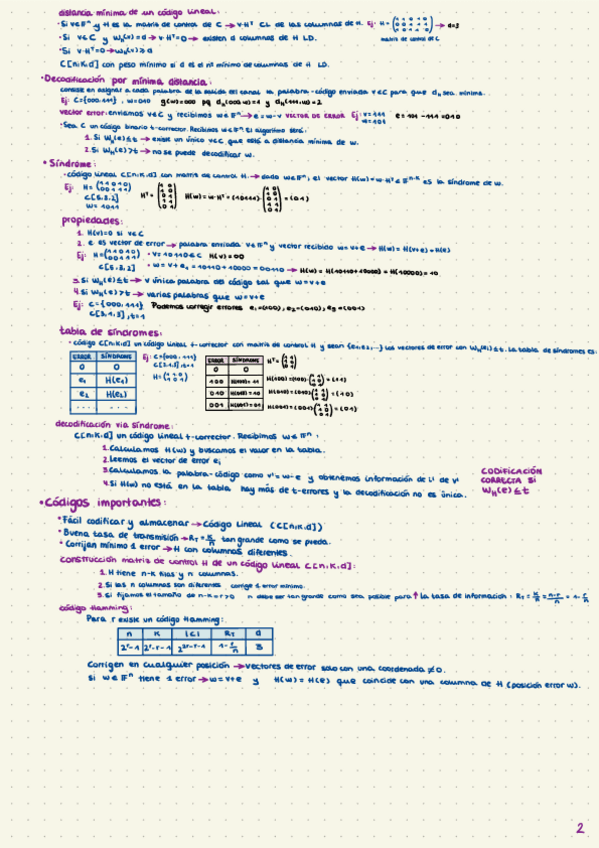 distancia mínima de un código lineal:
• Si v∈Fⁿ y H es la matriz de control de C → v·Hᵀ CL de las columnas de H. Ej:
matriz de control de C
• Si v∈C y W_H(v) = d → v·Hᵀ=0 → existen d columnas de H LD.
• Si v·Hᵀ=0 → W_H(v) ≥ d
C[n,K,d] con peso mínimo si d es el nº mínimo de columnas de H LD.
• Decodificación por mínima distancia:
consiste en asignar a cada palabra de la salida del canal la palabra-código enviada v∈C para que d_H sea mínima.
Ej: C={000,111}, w=010 g(w)=000 pq d_H(000,w)=1 y d_H(111,w)=2
vector error: enviamos v∈C y recibimos w∈Fⁿ → e=w-v VECTOR DE ERROR Ej: v=111 w=101 e=101-111=010
• Sea C un código binario t-corrector. Recibimos w∈Fⁿ. El algoritmo será:
1. Si W_H(e)≤t → existe un único v∈C que está a distancia mínima de w.
2. Si W_H(e)>t → no se puede decodificar w.
• Síndrome:
• código lineal C[n,K,d] con matriz de control H. → dado w∈Fⁿ, el vector H(w)=w·Hᵀ∈Fⁿ⁻ᴷ es la síndrome de w.
Ej: H=
C[5,3,2]
propiedades:
1. H(v)=0 si v∈C
2. e es vector de error → palabra enviada v∈Fⁿ y vector recibido w=v+e → H(w)=H(v+e)=H(e)
Ej: H= • v=10110∈C H(v)=00
C[5,3,2] • w=v+e₁=10110+10000=00110 → H(w)=H(10110+10000)=H(10000)=10
3. Si W_H(e)≤t → v única palabra del código tal que w=v+e
4. Si W_H(e)>t → varias palabras que w=v+e
Ej: C={000,111} Podemos corregir errores e₁=(100), e₂=(010), e₃=(001)
C[3,1,3], t=1
tabla de síndromes:
• código C[n,K,d] un código lineal t-corrector con matriz de control H y sean {e₁,e₂,...} los vectores de error con W_H(eᵢ)≤t. La tabla de síndromes es:
ERROR SÍNDROME
0 0
e₁ H(e₁)
e₂ H(e₂)
... ...
Ej: C={000,111}
C[3,1,3], t=1
ERROR SÍNDROME
0 0
100 H(100)=11
010 H(010)=10
001 H(001)=01
decodificación via síndrome:
C[n,K,d] un código lineal t-corrector. Recibimos w∈Fⁿ:
1. Calculamos H(w) y buscamos el valor en la tabla.
2. Leemos el vector de error eᵢ
3. Calculamos la palabra-código como v'=w-e y obtenemos información de
4. Si H(w) no está en la tabla hay más de t-errores y la decodificación no es única.
CODIFICACIÓN
CORRECTA SI
W_H(e)≤t
• Códigos importantes:
• Fácil codificar y almacenar → Código Lineal (C[n,K,d])
• Buena tasa de transmisión → R_T=K/n tan grande como se pueda.
• Corrijan mínimo 1 error → H con columnas diferentes.
construcción matriz de control H de un código lineal C[n,K,d]:
1. H tiene n-K filas y n columnas.
2. Si las n columnas son diferentes corrige 1 error mínimo.
3. Si fijamos el tamaño de n-K=r>0 n debe ser tan grande como sea posible para ↑ la tasa de información: R_T=K/n=(n-r)/n=1-r/n
código Hamming:
Para r existe un código Hamming:
n K |C| R_T d
2ʳ-1 2ʳ-r-1 1-r/n 3
Corrigen en cualquier posición → vectores de error solo con una coordenada ≠0.
Si w∈Fⁿ tiene 1 error → w=v+e y H(w)=H(e) que coincide con una columna de H (posición error w).
2